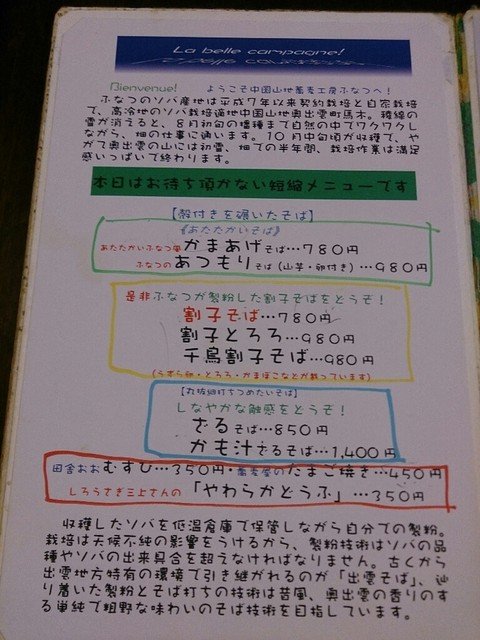 La belle campagne!
Bienvenue! ようこそ中国山地蕎麦工房ふなつへ!
ふなつのソバ産地は平成7年以来契約栽培と自家栽培
で、高冷地のソバ栽培適地中国山地奥出雲町馬木。稜線の
雪が消えると、8月初旬の播種まで自然の中でワクワクし
ながら、畑の仕事に通います。10月中旬頃が収穫で、や
がて奥出雲の山には初雪。畑での半年間、栽培作業は満足
感いっぱいで終わります。
本日はお待ち頂かない短縮メニューです
【殻付きを碾いたそば】
《あたたかいそば》
あたたかいふなつ風 かまあげそば…780円
ふなつの あつもりそば(山芋・卵付き)…980円
是非ふなつが製粉した割子そばをどうぞ!
割子そば…780円
割子とろろ…980円
千鳥割子そば…980円
(うずら卵・とろろ・かまぼこなどが載っています)
【丸抜細打ちつめたいそば】
しなやかな触感をどうぞ!
ざるそば…850円
かも汁ざるそば…1,400円
田舎おおむすび…350円・蕎麦屋のたまご焼き…450円
しろうさぎ三上さんの「やわらかどうふ」…350円
収穫したソバを低温倉庫で保管しながら自分での製粉。
栽培は天候不純の影響をうけるから、製粉技術はソバの品
種やソバの出来具合を超えなければなりません。古くから
出雲地方特有の環境で引き継がれるのが「出雲そば」、辿
り着いた製粉とそば打ちの技術は昔風、奥出雲の香りのす
る単純で粗野な味わいのそば技術を目指しています。